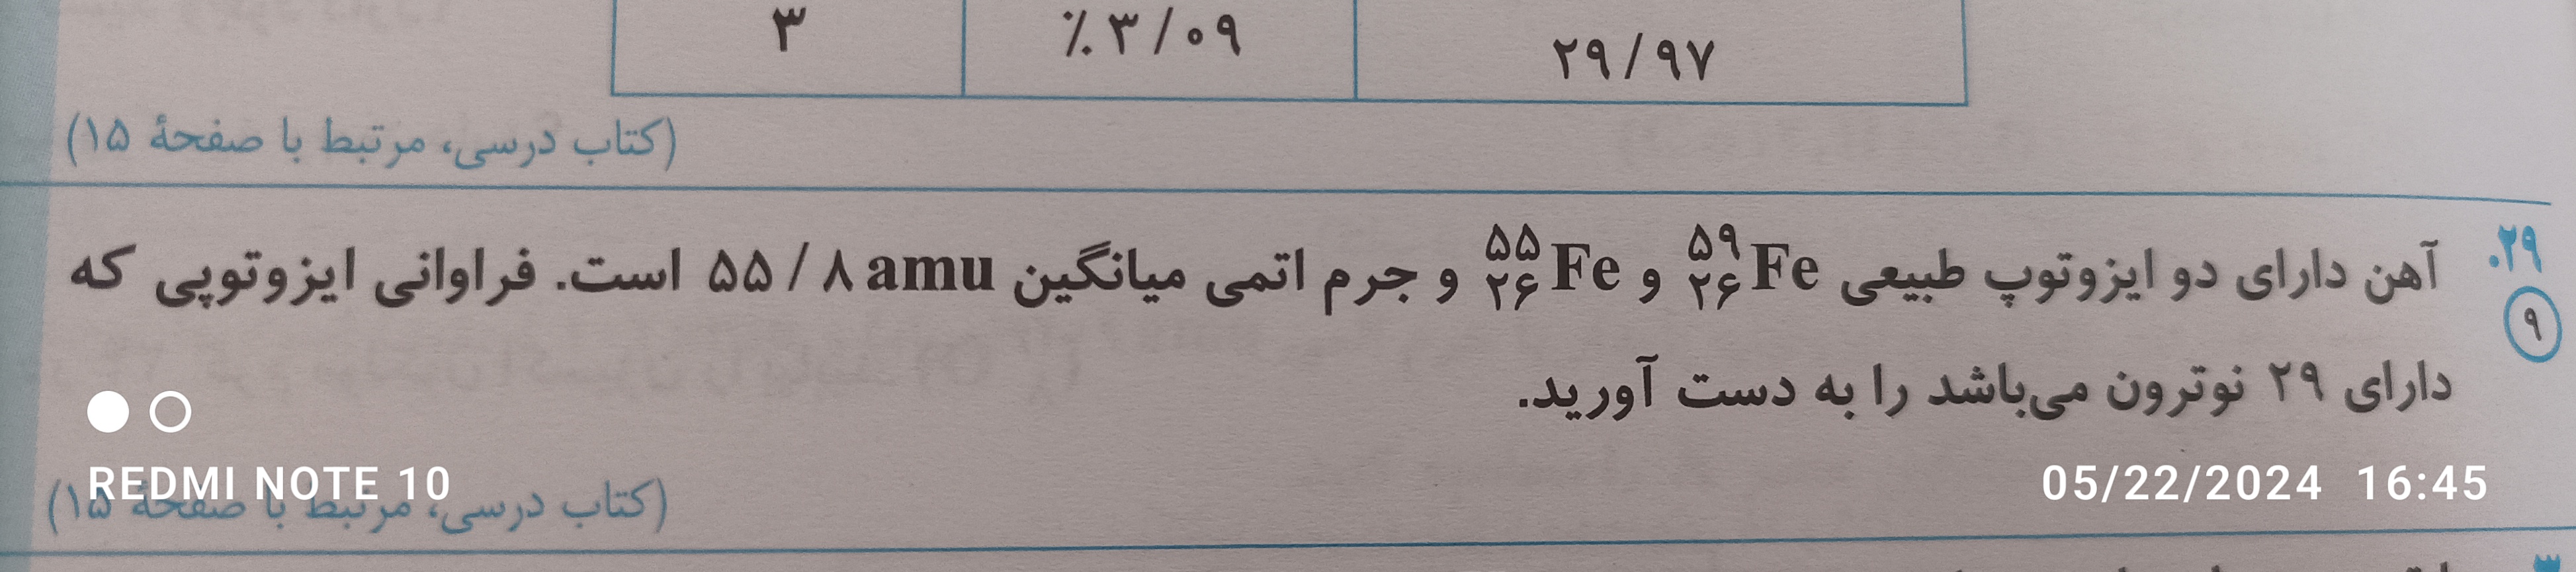 ۲۹/۹۷ ٪۳/۰۹ ۳
(کتاب درسی، مرتبط با صفحهٔ ۱۵)
۲۹. آهن دارای دو ایزوتوپ طبیعی ⁵⁹₂₆Fe و ⁵⁵₂₆Fe و جرم اتمی میانگین ۵۵/۸ amu است. فراوانی ایزوتوپی که
۹ دارای ۲۹ نوترون می‌باشد را به دست آورید.
(کتاب درسی، مرتبط با صفحهٔ ۱۵)
REDMI NOTE 10
05/22/2024 16:45